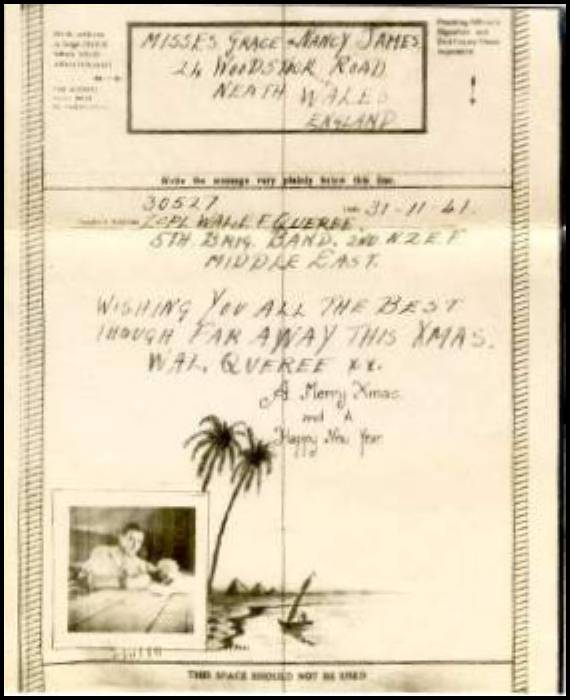 MISSES. GRACE & NANCY JAMES
24 WOODSIDE ROAD
NEATH WALES
ENGLAND
Write the message very plainly below this line.
30527 31-11-41.
L/CPL WALL F QUEREE.
5TH BRIG. BAND. 2ND N.Z.E.F.
MIDDLE EAST.
WISHING YOU ALL THE BEST
THOUGH FAR AWAY THIS XMAS.
WAL. QUEREE xx.
A Merry Xmas
and A
Happy New Year
THIS SPACE SHOULD NOT BE USED